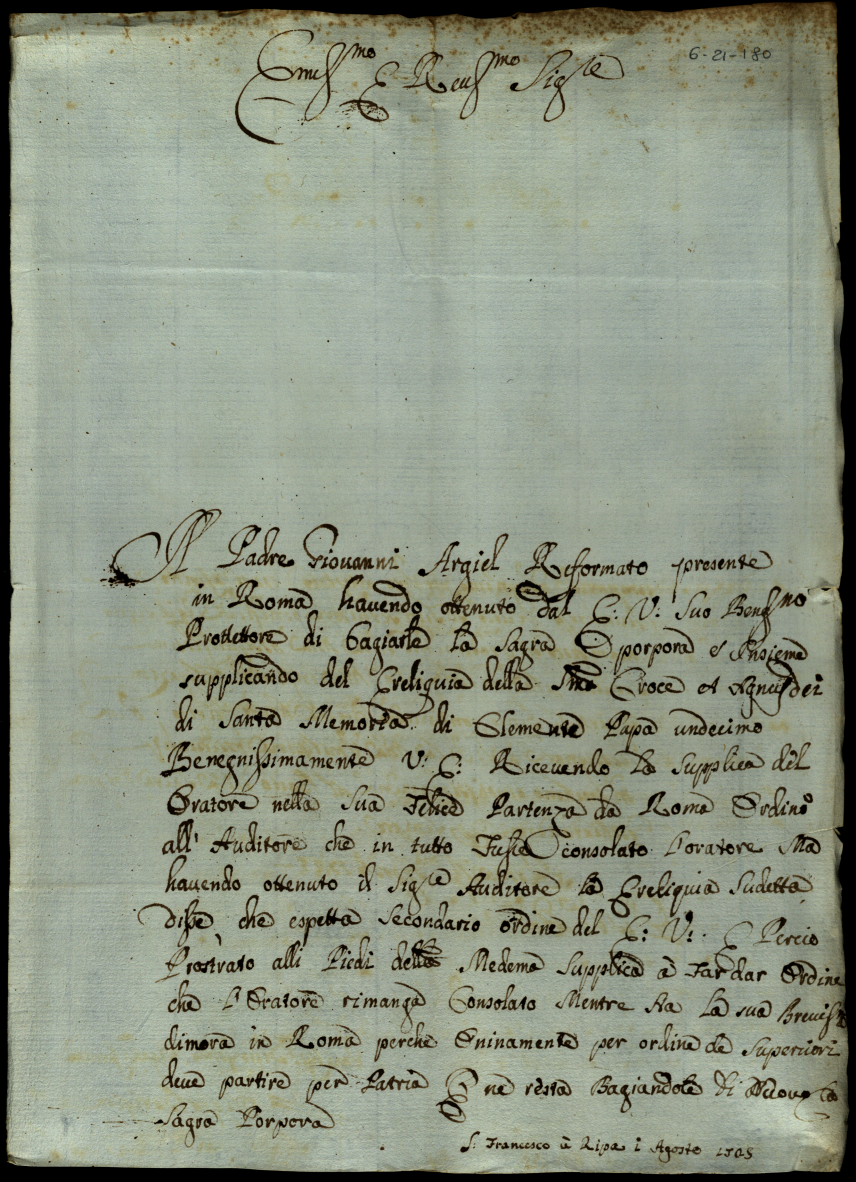 Em̃o E Reuss.mo Sig.re
6-21-180
Il Padre Giouanni Argiel Refformato presente
in Roma hauendo ottenuto dal E: V: Suo Benig.no
Prottettore di bagiarle la sagra porpora e insieme
supplicando del Ereliquia della S.ma Croce et Agnus dei
di Santa Memoria di Clemente Papa undecimo
Beregnissimamente V: E: Riceuendo la Supplica del
Oratore nella Sua Felice Partenza da Roma Ordinò
all' Auditore che in tutto Fusse consolato l'oratore Ma
hauendo ottenuto il Sig.re Auditore la Ereliquia Sudetta
disse che espetta Secondario ordine del E: V: E Perciò
Prostrato alli Piedi della Medema Supplica à Far dar Ordine
che l'Oratore rimanga Consolato Mentre sta la sua Breuiss.
dimora in Roma perche Oninamente per ordine de Superiori
deue partire per Patria E ne resta Bagiandole di nuouo la
Sagra Porpora
S: Francesco à Ripa i Agosto